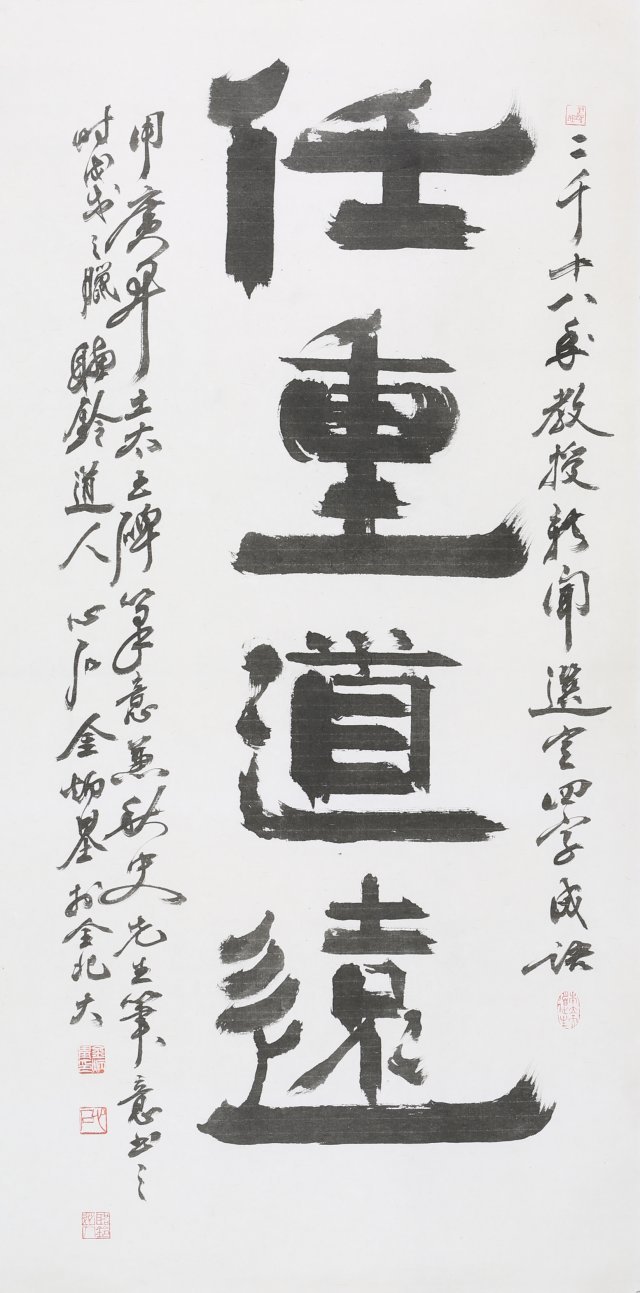 二千十八年教授新聞選定四字成語
任重道遠
用廣开土太王碑筆意兼秋史先生筆意書之
時戊戌之臘 鈴道人 心石 金炳基 於全北大